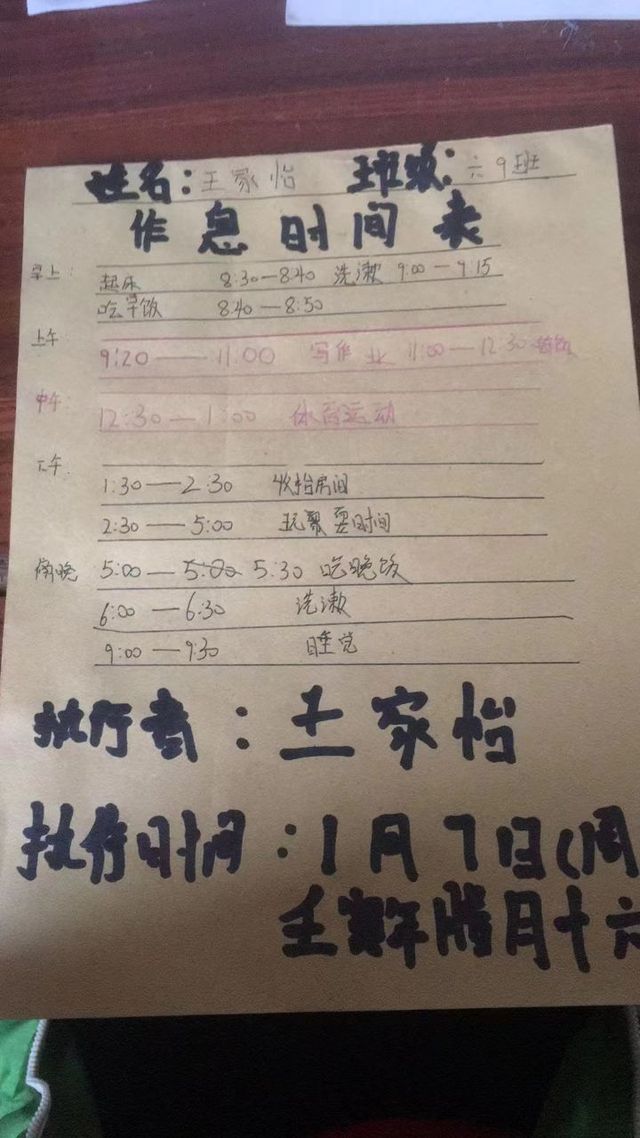 姓名：王家怡 班级：六9班
作息时间表
早上： 起床 8:30—8:40 洗漱 9:00—9:15
吃早饭 8:40—8:50
上午：
9:20——11:00 写作业 11:00—12:30
中午：
12:30—1:00 体育运动
下午：
1:30—2:30 收拾房间
2:30—5:00 玩 耍时间
傍晚 5:00—5:00 5:30 吃晚饭
6:00—6:30 洗漱
9:00—9:30 睡觉
执行者：王家怡
执行时间：1月7日(周
壬寅年腊月十六